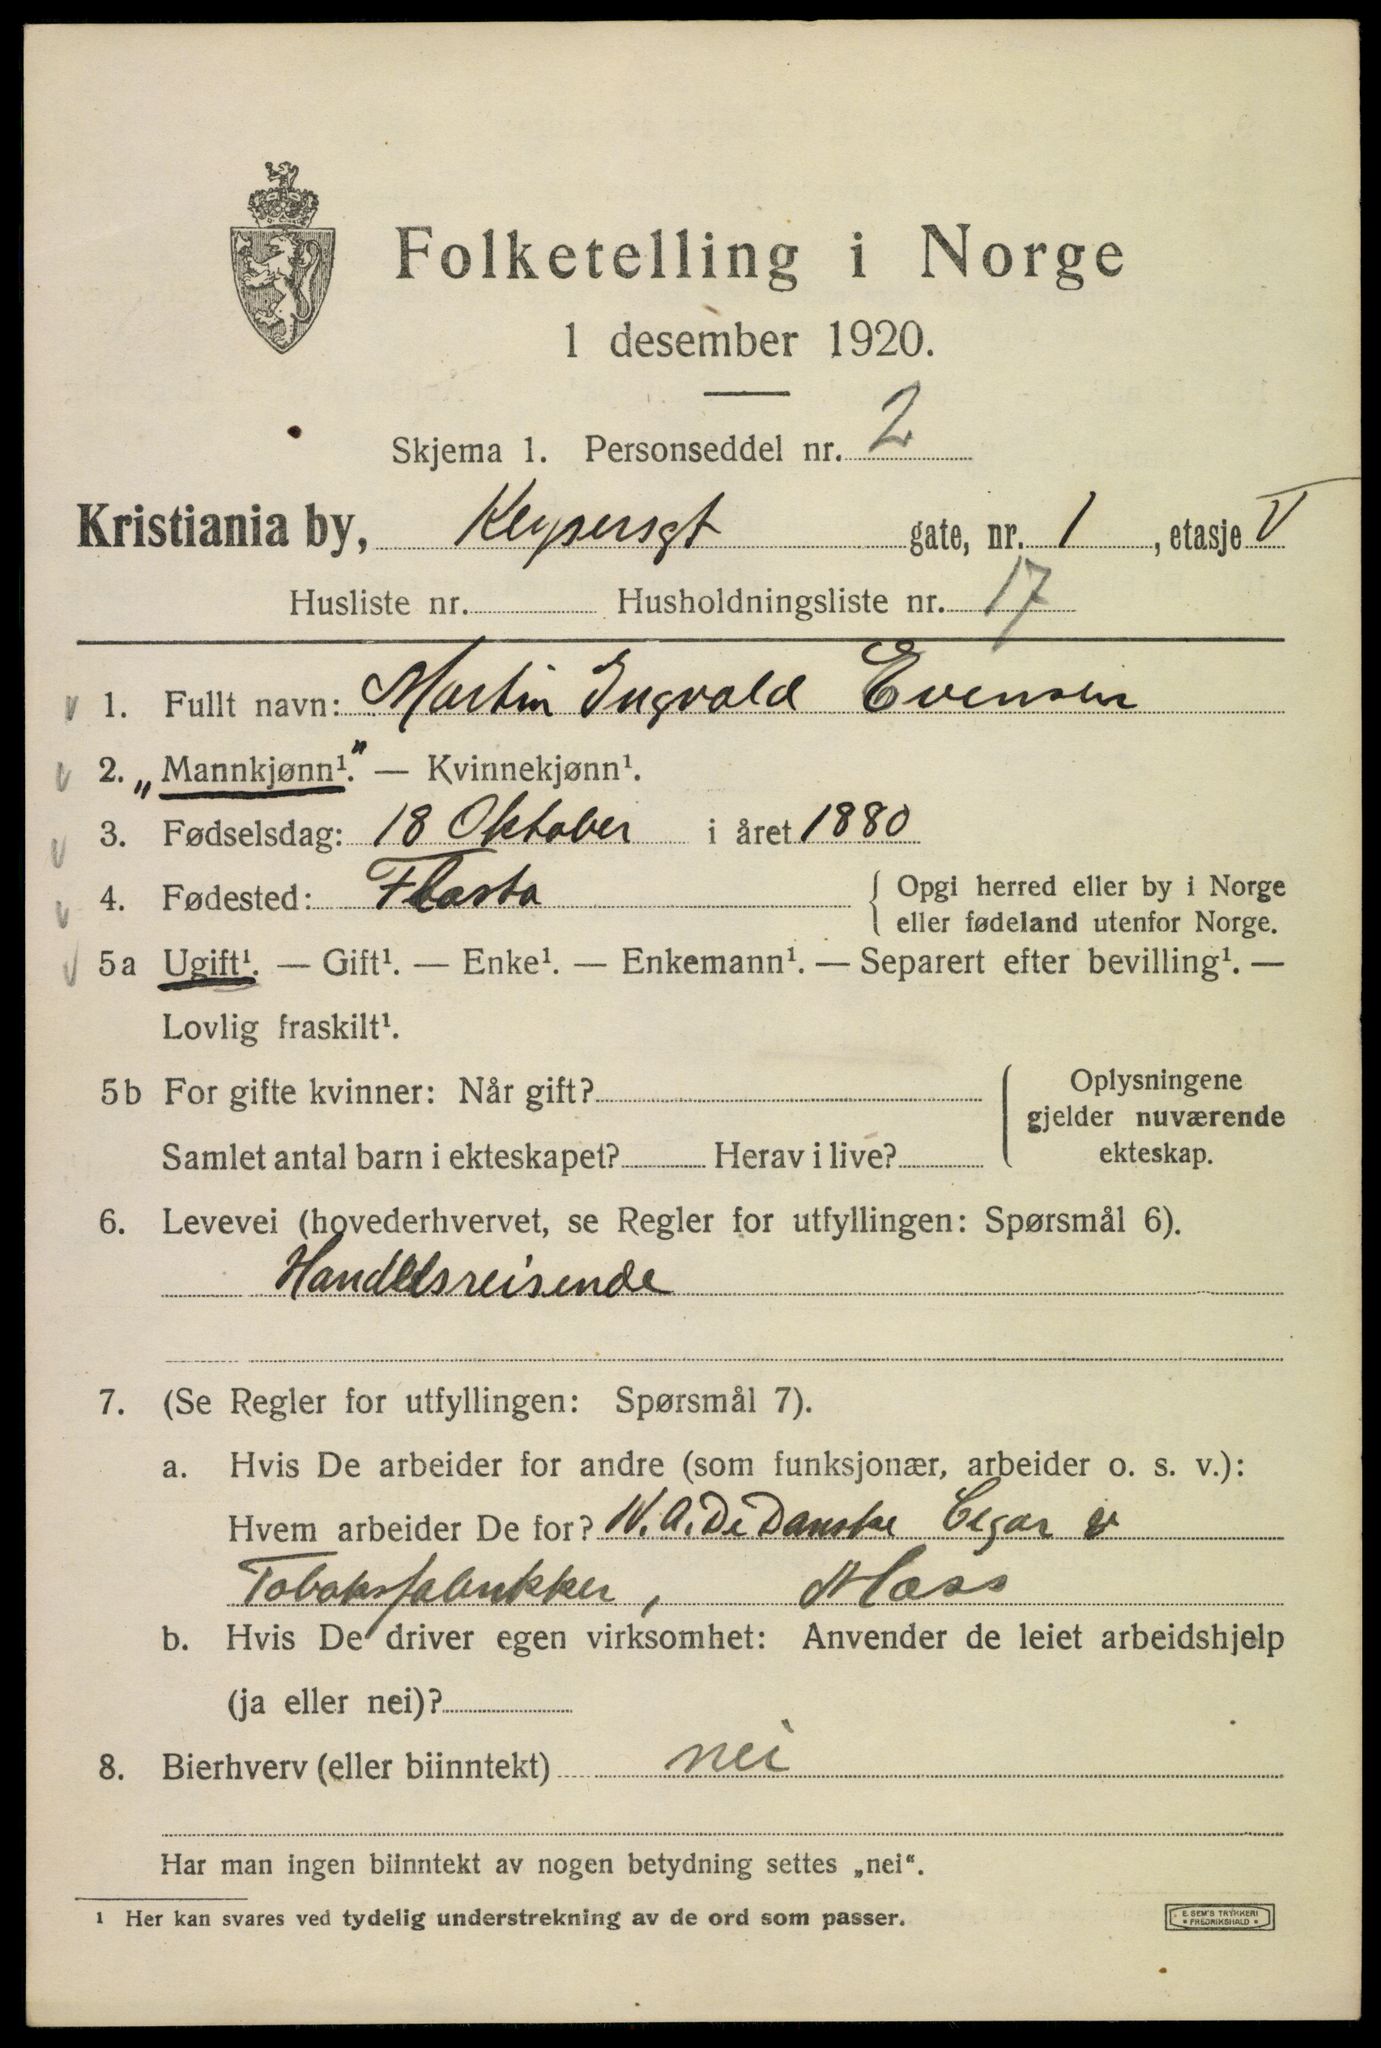 Folketelling i Norge
1 desember 1920.
Skjema 1. Personseddel nr. 2
Kristiania by, Keysersgt gate, nr. 1, etasje V
Husliste nr. Husholdningsliste nr. 17
1. Fullt navn: Martin Ingvald Evensen
2. „Mannkjønn¹.” — Kvinnekjønn¹.
3. Fødselsdag: 18 Oktober i året 1880
4. Fødested: { Opgi herred eller by i Norge
eller fødeland utenfor Norge.
5a Ugift¹. — Gift¹. — Enke¹. — Enkemann¹. — Separert efter bevilling¹. —
Lovlig fraskilt¹.
5b For gifte kvinner: Når gift?
Samlet antal barn i ekteskapet? Herav i live?
Oplysningene
gjelder nuværende
ekteskap.
6. Levevei (hovederhvervet, se Regler for utfyllingen: Spørsmål 6).
Handelsreisende
7. (Se Regler for utfyllingen: Spørsmål 7).
a. Hvis De arbeider for andre (som funksjonær, arbeider o. s. v.):
Hvem arbeider De for? De Danske Cigar
Tobaksfabrikker,
b. Hvis De driver egen virksomhet: Anvender de leiet arbeidshjelp
(ja eller nei)?
8. Bierhverv (eller biinntekt) nei
Har man ingen biinntekt av nogen betydning settes „nei“.
¹ Her kan svares ved tydelig understrekning av de ord som passer.
E. SEM'S TRYKKERI
FREDRIKSHALD